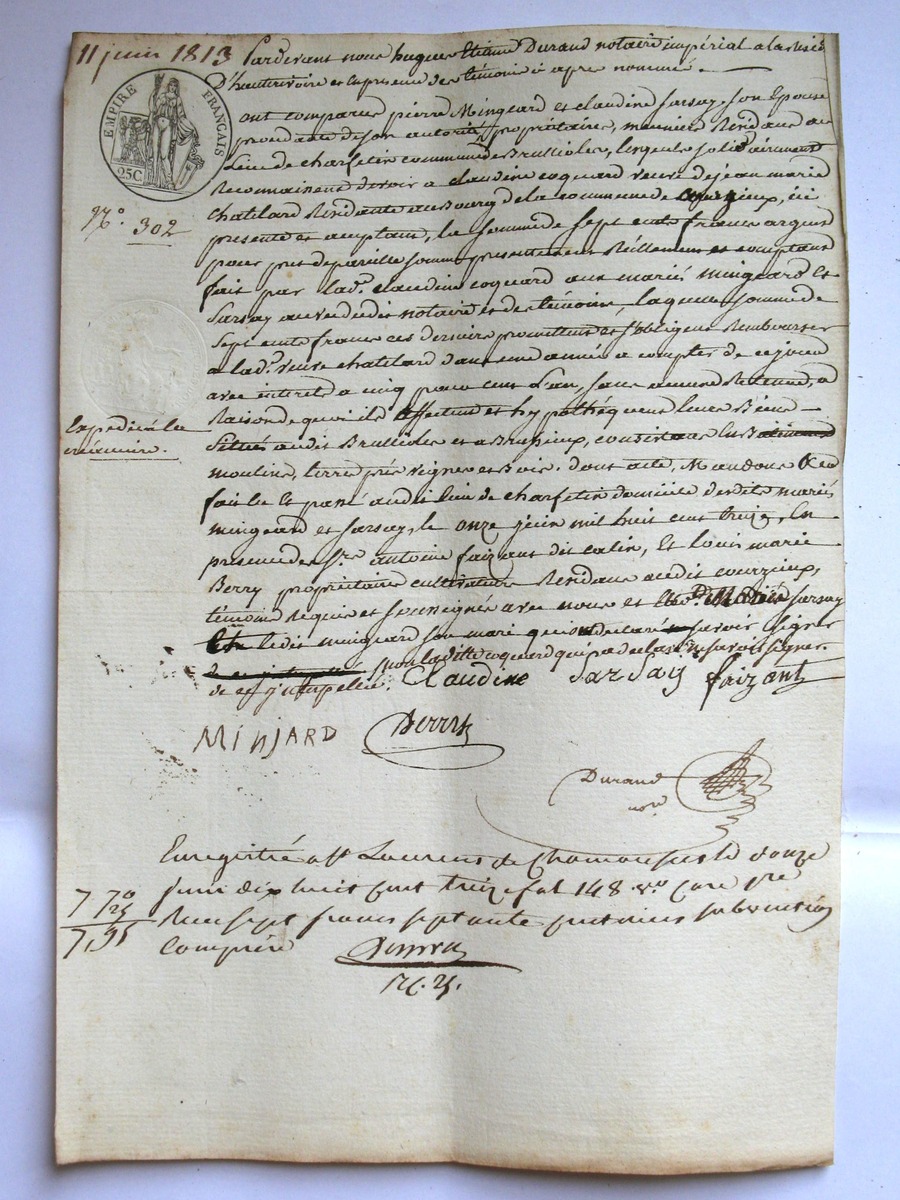 11 juin 1813 Pardevant nous hugues Etienne Durand notaire impérial a la residence
D'hauterivoire et en presence des témoins ci apres nommés.
EMPIRE FRANÇAIS
25C
ont comparus pierre Mingeard et claudine sarsay son Epouse
procedante de son autorité, propriétaires, meuniers Residans au
Lieu de charfetin commune de Brullioles, lesquels solidairement
Reconnaissent devoir a claudine coquard veuve de jean marie
chatelard Residante au Bourg de la commune de courzieux, ici
N.º 302
presente et acceptant, la somme de sept cents francs argent
pour pret de pareille somme presentement Réellement et comptant
fait par lad.e claudine coquard aux mariés mingeard Et
sarsay au vu dudit notaire et des témoins, laquelle somme de
sept cents francs ces derniers promettent et s'obligent Rembourser
a lad.e veuve chatelard dans une année a compter de ce jour
avec interet a cinq pour cent L'an, sans aucune Retenue, a
Expédié à la
créancière.
Raison de quoi ils affectent et hypothéquent leurs Biens
Situés audit Brullioles et a Brussieux, consistant En Batiments
moulins, terre prés vignes et Bois. dont acte,
fait lu Et passé audit lieu de charfetin domicile desdits mariés
mingeard et sarsay, le onze juin mil huit cent treize, En
presence de s.rs antoine faizant dit catin, Et louis marie
Berry propriétaires cultivateurs Residans audit courzieux,
témoins Requis et soussignés avec nous et sarsay
ledit mingeard son mari
non ladite coquard qui a declaré ne savoir signer
de ce interpellée. Claudine Sarsay faizant
MINJARD Berry
Durand
nore
Enregistré a St Laurent de Chamousset le douze
juin dix huit cent treize fol 148 vo case pre
7 70
25
7,95
Reçu sept francs septante centimes subvention
comprise